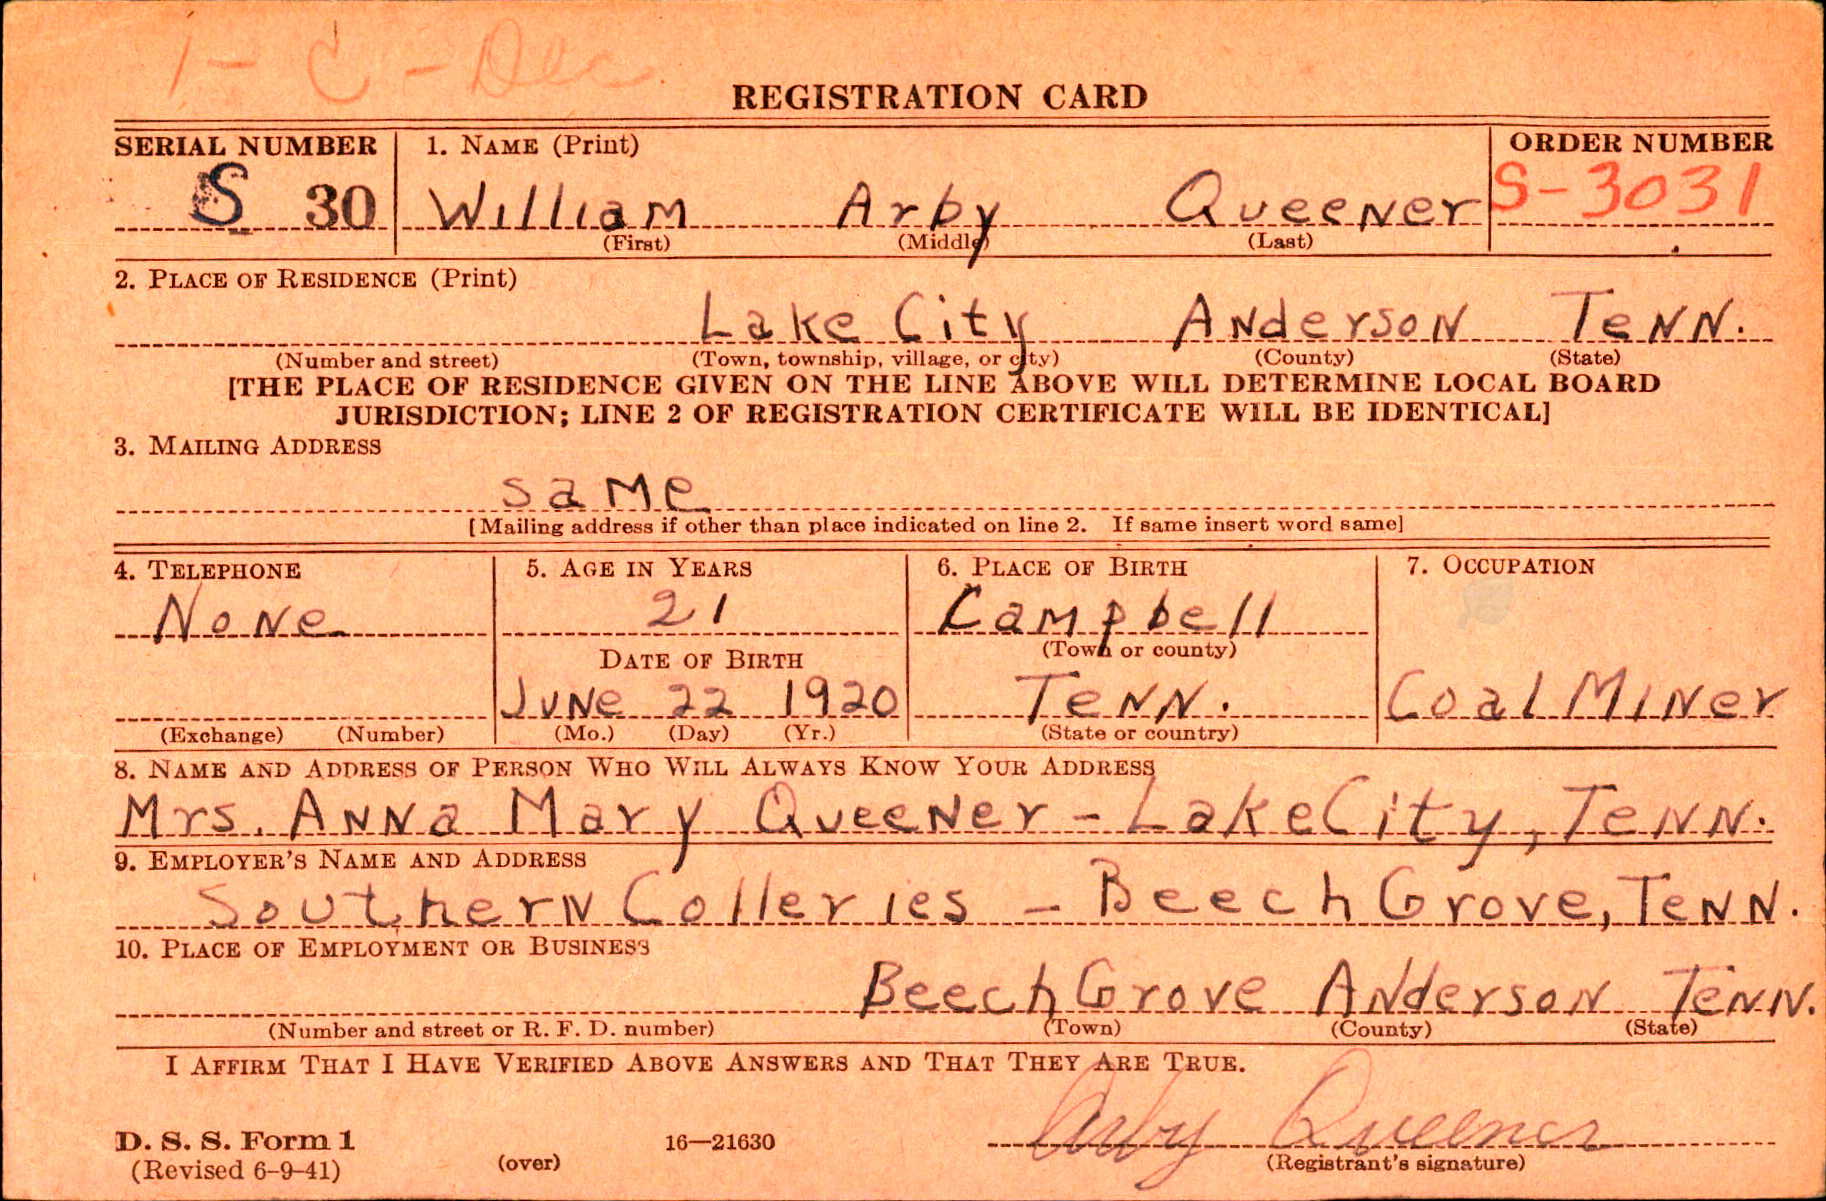 1 - C - Dec
REGISTRATION CARD
SERIAL NUMBER 1. NAME (Print) ORDER NUMBER
S 30 William Arby Queener S-3031
(First) (Middle) (Last)
2. PLACE OF RESIDENCE (Print)
Lake City Anderson Tenn.
(Number and street) (Town, township, village, or city) (County) (State)
[THE PLACE OF RESIDENCE GIVEN ON THE LINE ABOVE WILL DETERMINE LOCAL BOARD
JURISDICTION; LINE 2 OF REGISTRATION CERTIFICATE WILL BE IDENTICAL]
3. MAILING ADDRESS
same
[Mailing address if other than place indicated on line 2. If same insert word same]
4. TELEPHONE 5. AGE IN YEARS 6. PLACE OF BIRTH 7. OCCUPATION
None 21 Campbell
DATE OF BIRTH (Town or county)
June 22 1920 Tenn. Coal Miner
(Exchange) (Number) (Mo.) (Day) (Yr.) (State or country)
8. NAME AND ADDRESS OF PERSON WHO WILL ALWAYS KNOW YOUR ADDRESS
Mrs. Anna Mary Queener - Lake City, Tenn.
9. EMPLOYER'S NAME AND ADDRESS
Southern Colleries - Beech Grove, Tenn.
10. PLACE OF EMPLOYMENT OR BUSINESS
Beech Grove Anderson Tenn.
(Number and street or R. F. D. number) (Town) (County) (State)
I AFFIRM THAT I HAVE VERIFIED ABOVE ANSWERS AND THAT THEY ARE TRUE.
Arby Queener
D. S. S. Form 1 16—21630
(Revised 6-9-41) (over) (Registrant's signature)